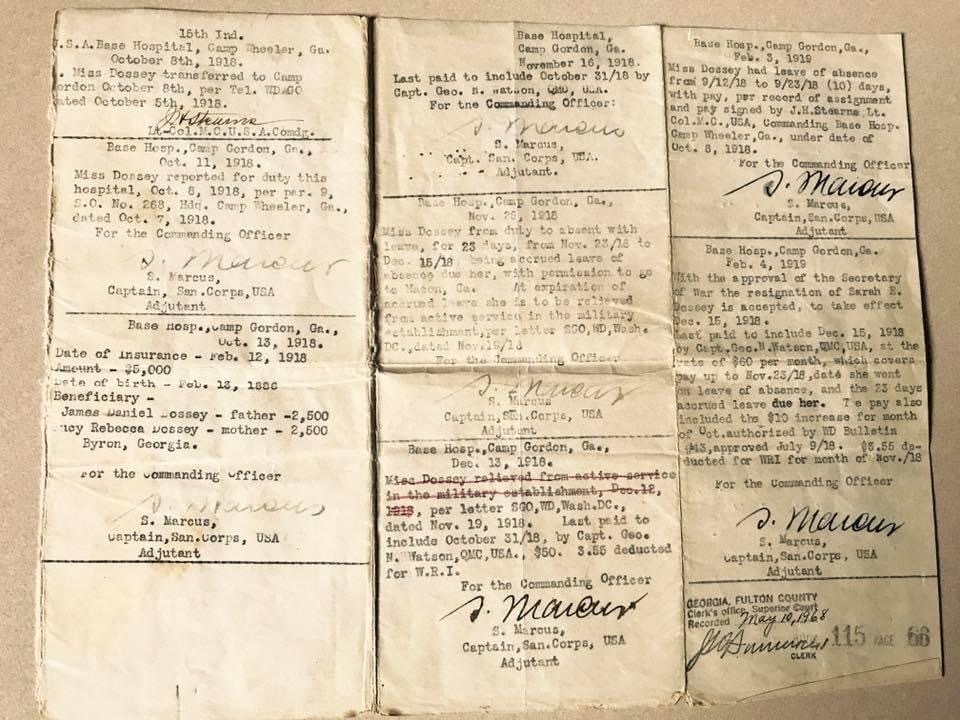 15th Ind.
U.S.A.Base Hospital, Camp Wheeler, Ga.
October 8th, 1918.
. Miss Dossey transferred to Camp
ordon October 8th, per Tel. WD AGO
ated October 5th, 1918.
J H Stearns
Lt-Col.M.C.U.S.A.Comdg.
Base Hosp., Camp Gordon, Ga.,
Oct. 11, 1918.
Miss Dossey reported for duty this
hospital, Oct. 8, 1918, per par. 9,
S.O. No. 268, Hdq. Camp Wheeler, Ga.,
dated Oct. 7, 1918.
For the Commanding Officer
S. Marcus
S. Marcus,
Captain, San.Corps,USA
Adjutant
Base Hosp.,Camp Gordon, Ga.,
Oct. 13, 1918.
Date of Insurance - Feb. 12, 1918
Amount - $5,000
Date of birth - Feb. 13, 1886
Beneficiary -
James Daniel Dossey - father -2,500
ucy Rebecca Dossey - mother - 2,500
Byron, Georgia.
For the Commanding Officer
S. Marcus
S. Marcus,
Captain,San.Corps, USA
Adjutant
Base Hospital,
Camp Gordon, Ga.
November 16, 1918.
Last paid to include October 31/18 by
Capt. Geo. N. Watson, QMC, USA.
For the Commanding Officer:
S. Marcus
S. Marcus,
Capt. San. Corps, USA.
Adjutant.
Base Hosp., Camp Gordon, Ga.,
Nov. 26, 1918
Miss Dossey from duty to absent with
leave, for 23 days, from Nov. 23/18 to
Dec. 15/18, being accrued leave of
absence due her, with permission to go
to Macon, Ga. At expiration of
accrued leave she is to be relieved
from active service in the military
establishment,per letter SGO,WD,Wash.
DC.,dated Nov.19/18
For the Commanding Officer
S. Marcus
S. Marcus
Captain,San.Corps, USA
Adjutant
Base Hosp.,Camp Gordon, Ga.,
Dec. 13, 1918.
Miss Dossey relieved from active service
in the military establishment, Dec.12,
1918, per letter SGO,WD,Wash.DC.,
dated Nov. 19, 1918. Last paid to
include October 31/18, by Capt. Geo.
N. Watson,QMC,USA., $50. 3.55 deducted
for W.R.I.
For the Commanding Officer
S. Marcus
S. Marcus,
Captain,San.Corps, USA
Adjutant
Base Hosp.,Camp Gordon,Ga.,
Feb. 3, 1919
Miss Dossey had leave of absence
from 9/12/18 to 9/23/18 (10) days,
with pay, per record of assignment
and pay signed by J.H.Stearns,Lt.
Col.M.C.,USA, Commanding Base Hosp.
Camp Wheeler,Ga., under date of
Oct. 8, 1918.
For the Commanding Officer
S. Marcus
S. Marcus,
Captain,San.Corps,USA
Adjutant
Base Hosp., Camp Gordon,Ga.
Feb. 4, 1919
With the approval of the Secretary
of War the resignation of Sarah E.
Dossey is accepted, to take effect
Dec. 15, 1918.
Last paid to include Dec. 15, 1918
by Capt.Geo.N.Watson,QMC,USA, at the
rate of $60 per month, which covers
pay up to Nov.23/18,date she went
on leave of absence, and the 23 days
accrued leave due her. The pay also
included the $10 increase for month
of Oct.authorized by WD Bulletin
#43,approved July 9/18. $3.55 de-
ducted for WRI for month of Nov./18
For the Commanding Officer
S. Marcus
S. Marcus,
Captain,San.Corps, USA
Adjutant
GEORGIA, FULTON COUNTY
Clerk's office, Superior Court
Recorded May 10, 1968
115 PAGE 66
CLERK